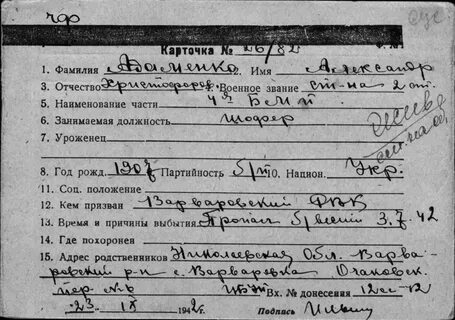 Карточка № 26/82
1. Фамилия Адаменко 2. Имя Александр
3. Отчество Христофоров. 4. Военное звание ст-на 2 ст.
5. Наименование части БМП
6. Занимаемая должность шофер
7. Уроженец
8. Год рожд. 1907 9. Партийность б/п 10. Национ. Укр.
11. Соц. положение
12. Кем призван Варваровский РВК
13. Время и причины выбытия Пропал б/вести 3.7.42
14. Где похоронен
15. Адрес родственников Николаевская Обл.Варва-
ровский р-н с. Варваровка Очаковск.
пер. №
23 IX 1942 г. Вх. № донесения 12сс-42
Подпись